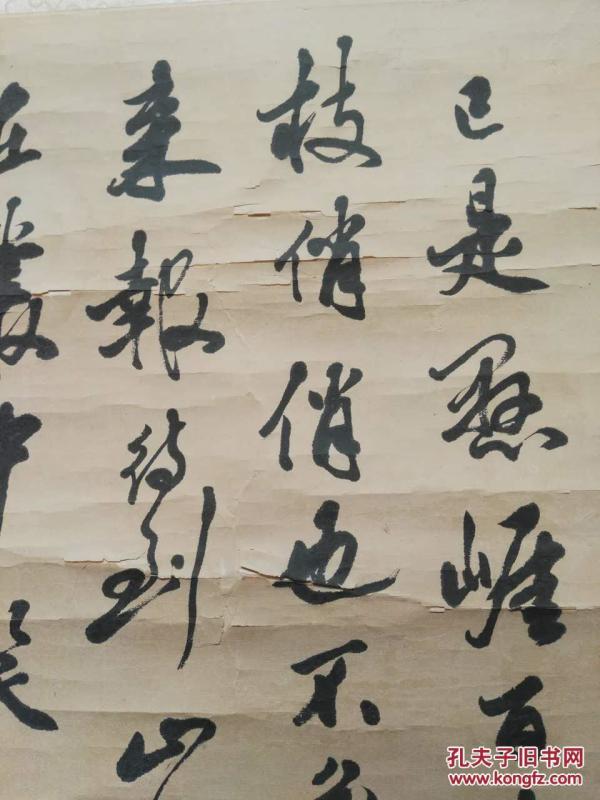 已是悬崖百
枝俏俏也不
来報待到山
在叢中笑
孔夫子旧书网
www.kongfz.com